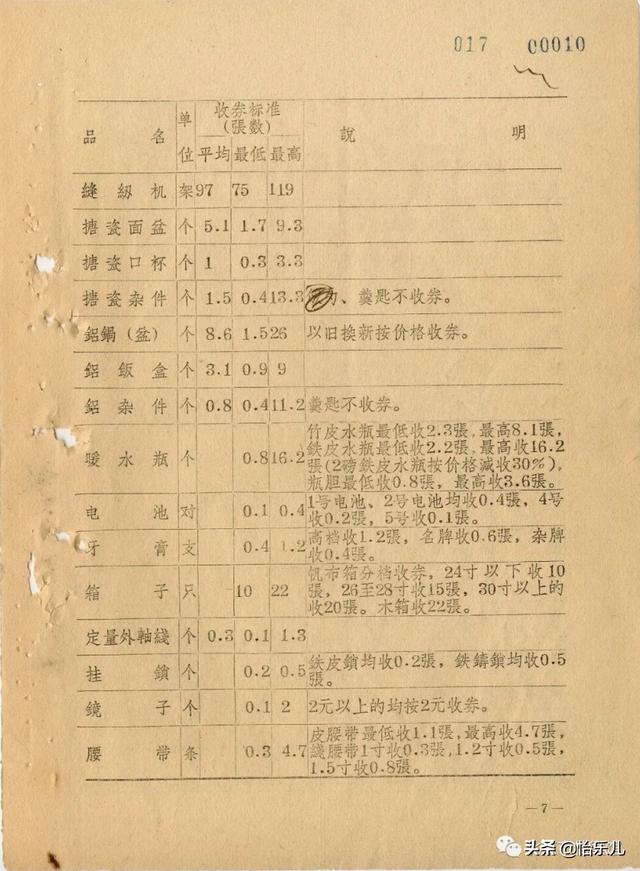 017 00010
品名 单位 收券标准(張数) 平均 最低 最高 說明
縫紉机 架 97 75 119
搪瓷面盆 个 5.1 1.7 9.3
搪瓷口杯 个 1 0.3 3.3
搪瓷杂件 个 1.5 0.4 13.3 、羹匙不收券。
鋁鍋(盆) 个 8.6 1.5 26 以旧换新按价格收券。
鋁飯盒 个 3.1 0.9 9
鋁杂件 个 0.8 0.4 11.2 羹匙不收券。
暖水瓶 个 0.8 16.2 竹皮水瓶最低收2.3張,最高8.1張,
鉄皮水瓶最低收2.2張,最高收16.2
張(2磅鉄皮水瓶按价格減收30%),
瓶胆最低收0.8張,最高收3.6張。
电池 对 0.1 0.4 1号电池、2号电池均收0.4張,4号
收0.2張,5号收0.1張。
牙膏 支 0.4 1.2 高档收1.2張,名牌收0.6張,杂牌
收0.4張。
箱子 只 10 22 帆布箱分档收券,24寸以下收10
張,26至28寸收15張,30寸以上的
收20張。木箱收22張。
定量外軸綫 个 0.3 0.1 1.3
挂鎖 个 0.2 0.5 鉄皮鎖均收0.2張,鉄鑄鎖均收0.5
張。
鏡子 个 0.1 2 2元以上的均按2元收券。
腰带 条 0.3 4.7 皮腰带最低收1.1張,最高收4.7張,
綫腰带1寸收0.3張,1.2寸收0.5張,
1.5寸收0.8張。
—7—
头条@怡乐儿